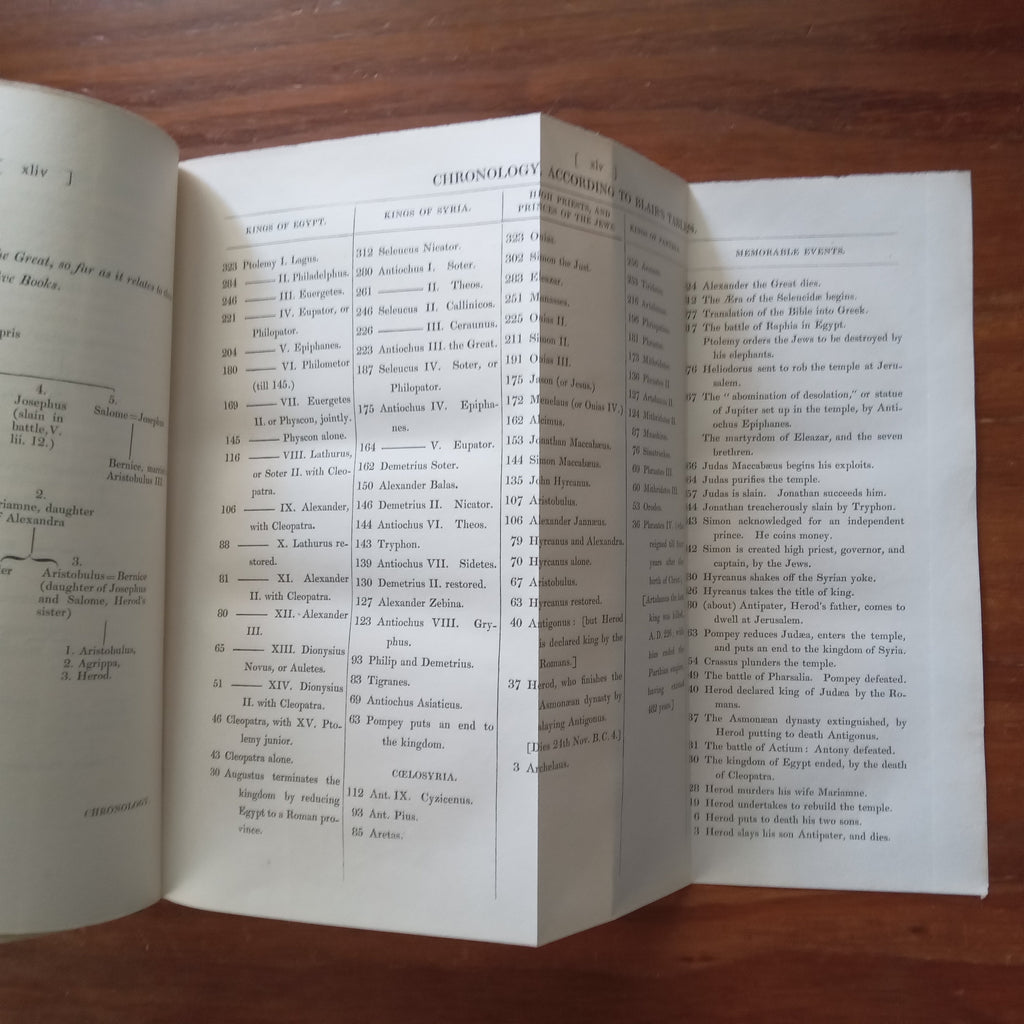 xliv ]
e Great, so far as it relates to
ve Books.
pris
4.
Josephus
(slain in
battle, V.
lii. 12.)
5.
Salome=Joseph
Bernice,
Aristobulus III
2.
riamne, daughter
f Alexandra
er
3.
Aristobulus=Bernice
(daughter of Josephus
and Salome, Herod's
sister)
1. Aristobulus,
2. Agrippa,
3. Herod.
CHRONOLOGY.
[ xlv ]
CHRONOLOGY, ACCORDING TO BLAIR'S TABLES.
KINGS OF EGYPT.
323 Ptolemy I. Lagus.
284 —— II. Philadelphus.
246 —— III. Euergetes.
221 —— IV. Eupator, or
Philopator.
204 —— V. Epiphanes.
180 —— VI. Philometor
(till 145.)
169 —— VII. Euergetes
II. or Physcon, jointly.
145 —— Physcon alone.
116 —— VIII. Lathurus,
or Soter II. with Cleo-
patra.
106 —— IX. Alexander,
with Cleopatra.
88 —— X. Lathurus re-
stored.
81 —— XI. Alexander
II. with Cleopatra.
80 —— XII. Alexander
III.
65 —— XIII. Dionysius
Novus, or Auletes.
51 —— XIV. Dionysius
II. with Cleopatra.
46 Cleopatra, with XV. Pto-
lemy junior.
43 Cleopatra alone.
30 Augustus terminates the
kingdom by reducing
Egypt to a Roman pro-
vince.
KINGS OF SYRIA.
312 Seleucus Nicator.
280 Antiochus I. Soter.
261 —— II. Theos.
246 Seleucus II. Callinicos.
226 —— III. Ceraunus.
223 Antiochus III. the Great.
187 Seleucus IV. Soter, or
Philopator.
175 Antiochus IV. Epipha-
nes.
164 —— V. Eupator.
162 Demetrius Soter.
150 Alexander Balas.
146 Demetrius II. Nicator.
144 Antiochus VI. Theos.
143 Tryphon.
139 Antiochus VII. Sidetes.
130 Demetrius II. restored.
127 Alexander Zebina.
123 Antiochus VIII. Gry-
phus.
93 Philip and Demetrius.
83 Tigranes.
69 Antiochus Asiaticus.
63 Pompey puts an end to
the kingdom.
CŒLOSYRIA.
112 Ant. IX. Cyzicenus.
93 Ant. Pius.
85 Aretas.
HIGH PRIESTS, AND
PRINCES OF THE JEWS.
323 Onias.
302 Simon the Just.
283 Eleazar.
251 Manasses.
225 Onias II.
211 Simon II.
191 Onias III.
175 Jason (or Jesus.)
172 Menelaus (or Onias IV.)
162 Alcimus.
153 Jonathan Maccabæus.
144 Simon Maccabæus.
135 John Hyrcanus.
107 Aristobulus.
106 Alexander Jannæus.
79 Hyrcanus and Alexandra.
70 Hyrcanus alone.
67 Aristobulus.
63 Hyrcanus restored.
40 Antigonus: [but Herod
is declared king by the
Romans.]
37 Herod, who finishes the
Asmonæan dynasty by
slaying Antigonus.
[Dies 24th Nov. B. C. 4.]
3 Archelaus.
KINGS OF PARTHIA.
136 Phraates II.
127 Artabanus II.
124 Mithridates II.
87
76
69 Phraates III.
60 Mithridates III.
53 Orodes.
36 Phraates IV.
reigned till
years after the
birth of Christ.)
[Artabanus the last
king was killed,
A.D. 226,
Parthian empire,
having existed
MEMORABLE EVENTS.
24 Alexander the Great dies.
12 The Æra of the Seleucidæ begins.
77 Translation of the Bible into Greek.
17 The battle of Raphia in Egypt.
Ptolemy orders the Jews to be destroyed by
his elephants.
76 Heliodorus sent to rob the temple at Jeru-
salem.
67 The "abomination of desolation," or statue
of Jupiter set up in the temple, by Anti-
ochus Epiphanes.
The martyrdom of Eleazar, and the seven
brethren.
66 Judas Maccabæus begins his exploits.
64 Judas purifies the temple.
57 Judas is slain. Jonathan succeeds him.
44 Jonathan treacherously slain by Tryphon.
43 Simon acknowledged for an independent
prince. He coins money.
42 Simon is created high priest, governor, and
captain, by the Jews.
30 Hyrcanus shakes off the Syrian yoke.
26 Hyrcanus takes the title of king.
80 (about) Antipater, Herod's father, comes to
dwell at Jerusalem.
63 Pompey reduces Judæa, enters the temple,
and puts an end to the kingdom of Syria.
54 Crassus plunders the temple.
49 The battle of Pharsalia. Pompey defeated.
40 Herod declared king of Judæa by the Ro-
mans.
37 The Asmonæan dynasty extinguished, by
Herod putting to death Antigonus.
31 The battle of Actium: Antony defeated.
30 The kingdom of Egypt ended, by the death
of Cleopatra.
28 Herod murders his wife Mariamne.
19 Herod undertakes to rebuild the temple.
6 Herod puts to death his two sons.
3 Herod slays his son Antipater, and dies.